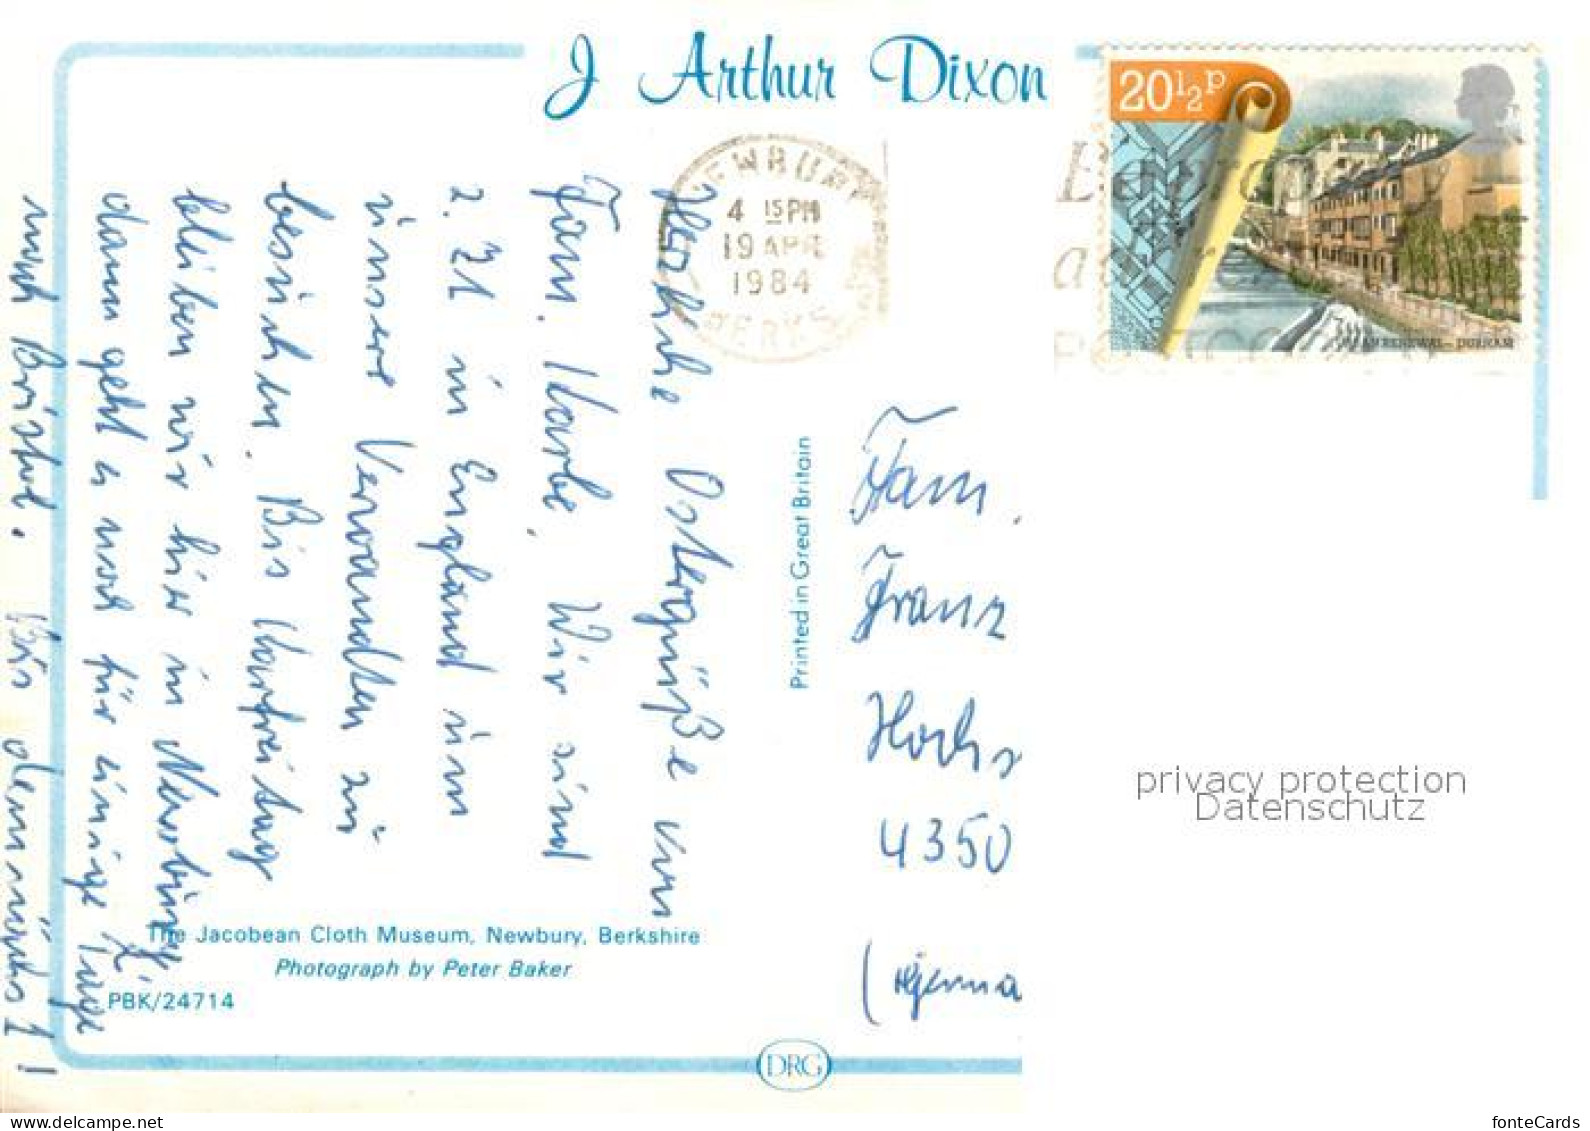 J Arthur Dixon
20½P
URBAN RENEWAL – DURHAM
NEWBURY
4 15 PM
19 APR
1984
BERKS
Herzliche Ostergrüße von
Fam. Korbe. Wir sind
z. Zt in England um
unsere Verwandten zu
besuchen. Bis Karfreitag
bleiben wir hier in Newbury,
dann geht es noch für einige Tage
nach Bristol. Bis demnächst!
Printed in Great Britain
Fam.
Franz
4350
The Jacobean Cloth Museum, Newbury, Berkshire
Photograph by Peter Baker
PBK/24714
DRG
privacy protection
Datenschutz
fonteCards